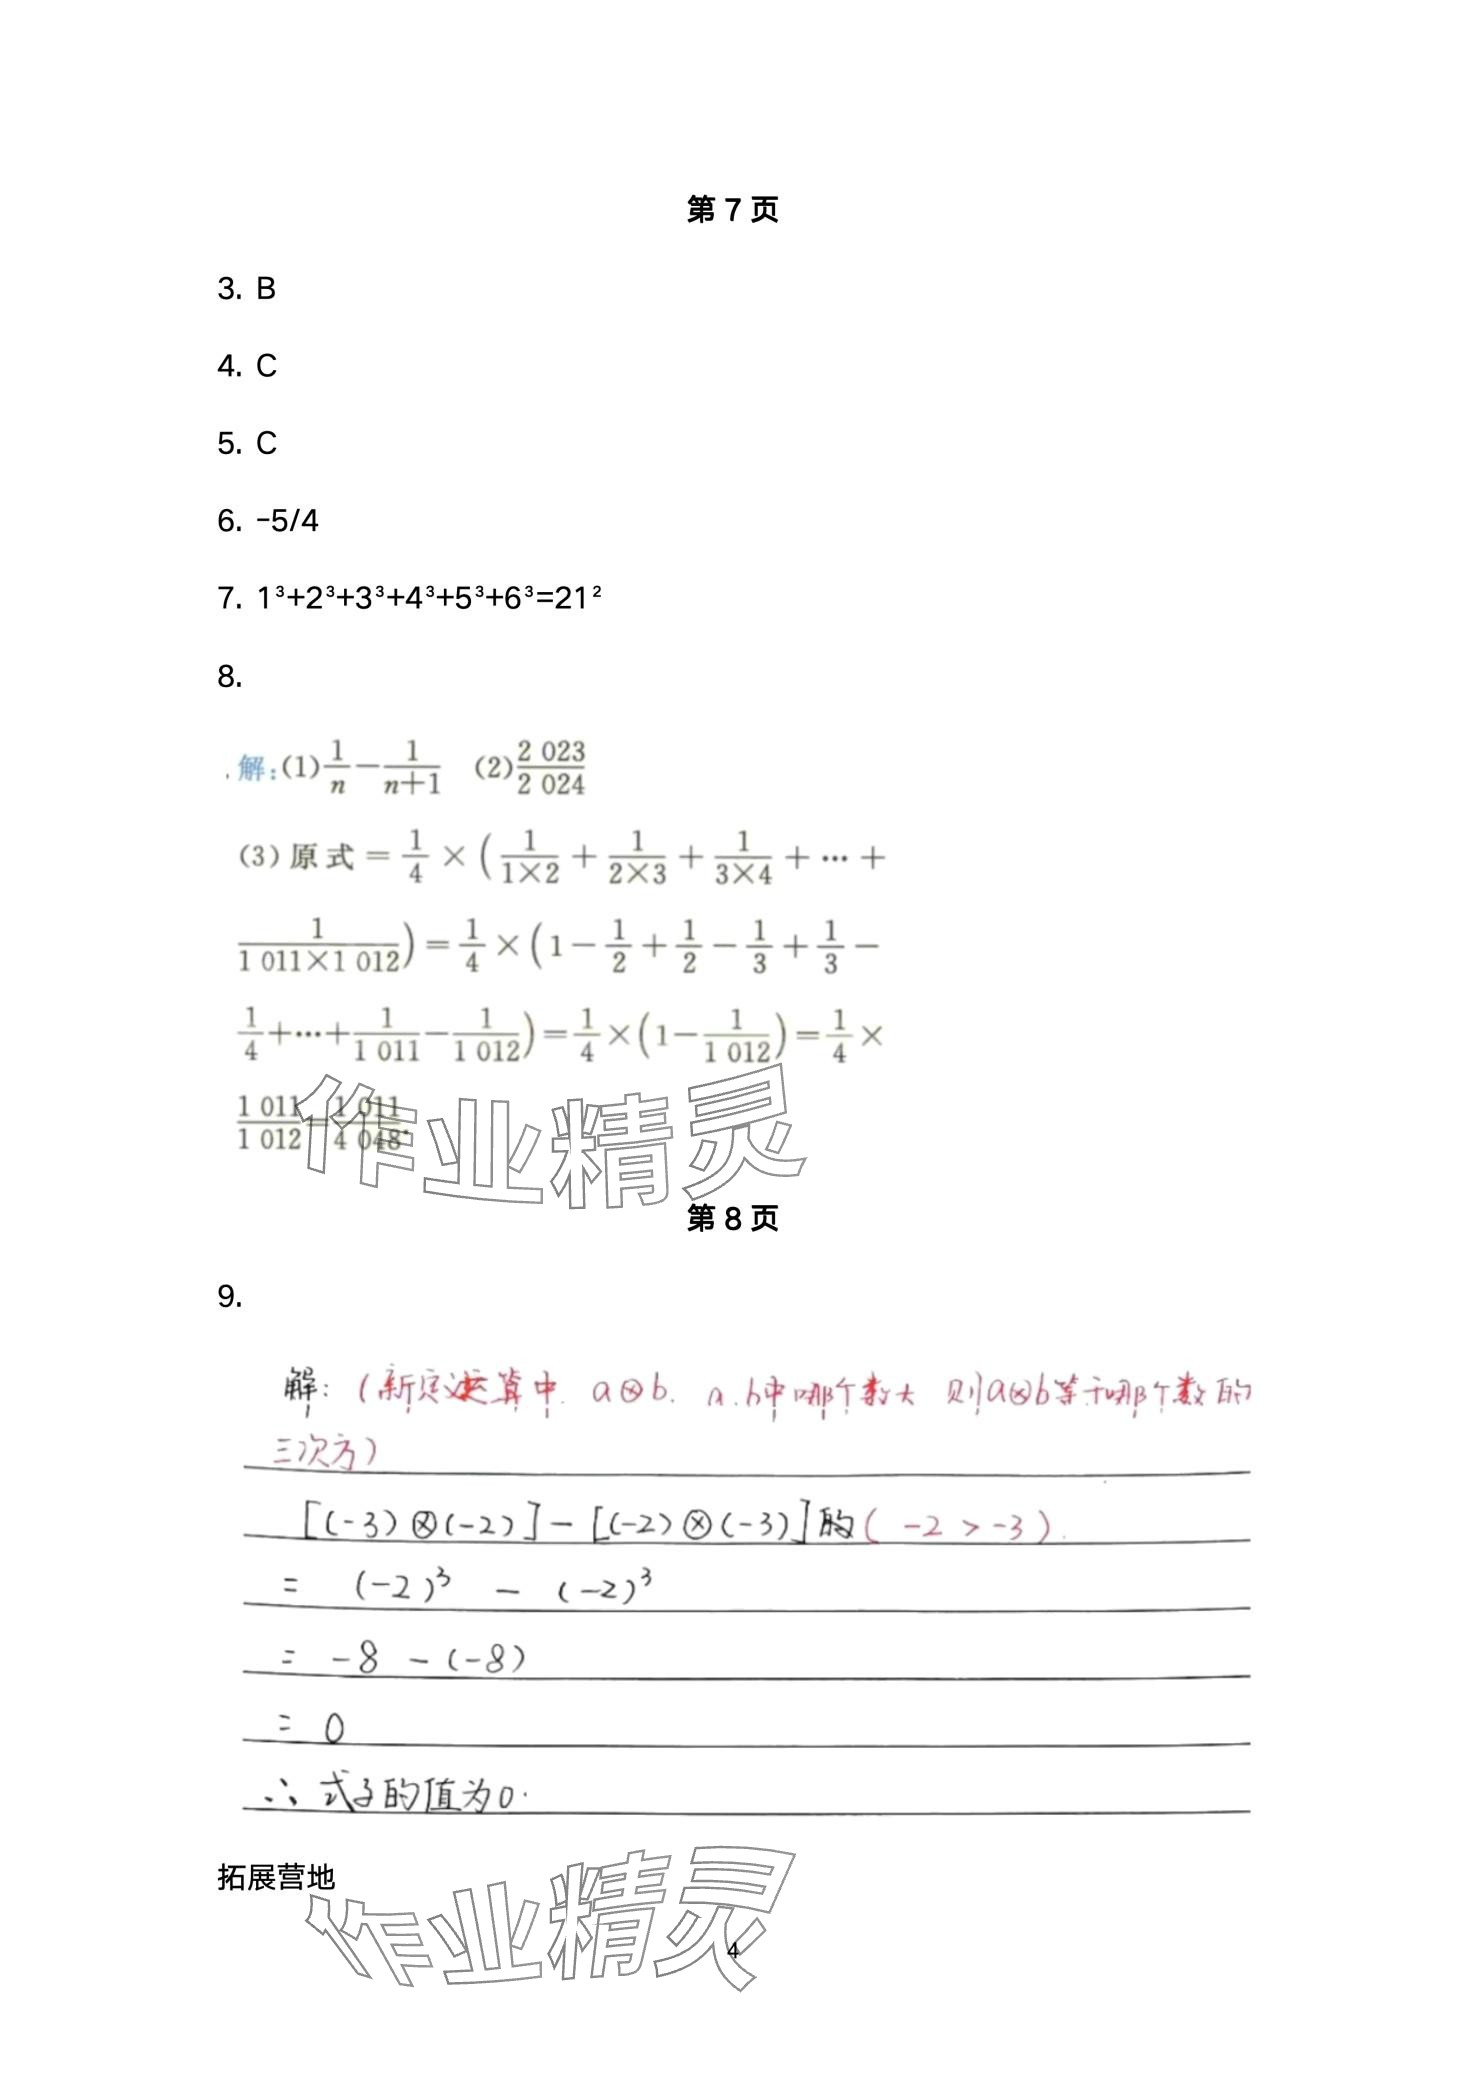 第 7 页
3. B
4. C
5. C
6. -5/4
7. 1³+2³+3³+4³+5³+6³=21²
8.
解:(1) 1/n − 1/(n+1) (2) 2 023/2 024
(3) 原式 = 1/4 × ( 1/(1×2) + 1/(2×3) + 1/(3×4) + ⋯ +
1/(1 011×1 012) ) = 1/4 × ( 1 − 1/2 + 1/2 − 1/3 + 1/3 −
1/4 + ⋯ + 1/1 011 − 1/1 012 ) = 1/4 × ( 1 − 1/1 012 ) = 1/4 ×
1 011/1 012 = 1 011/4 048.
作业精灵
第 8 页
9.
解: (新定义运算中. a⊗b. a.b中哪个数大 则a⊗b等于哪个数的
三次方)
[(-3)⊗(-2)] - [(-2)⊗(-3)]的( -2 > -3 ).
= (-2)³ - (-2)³
= -8 - (-8)
= 0
∴ 式子的值为0.
拓展营地
作业精灵
4